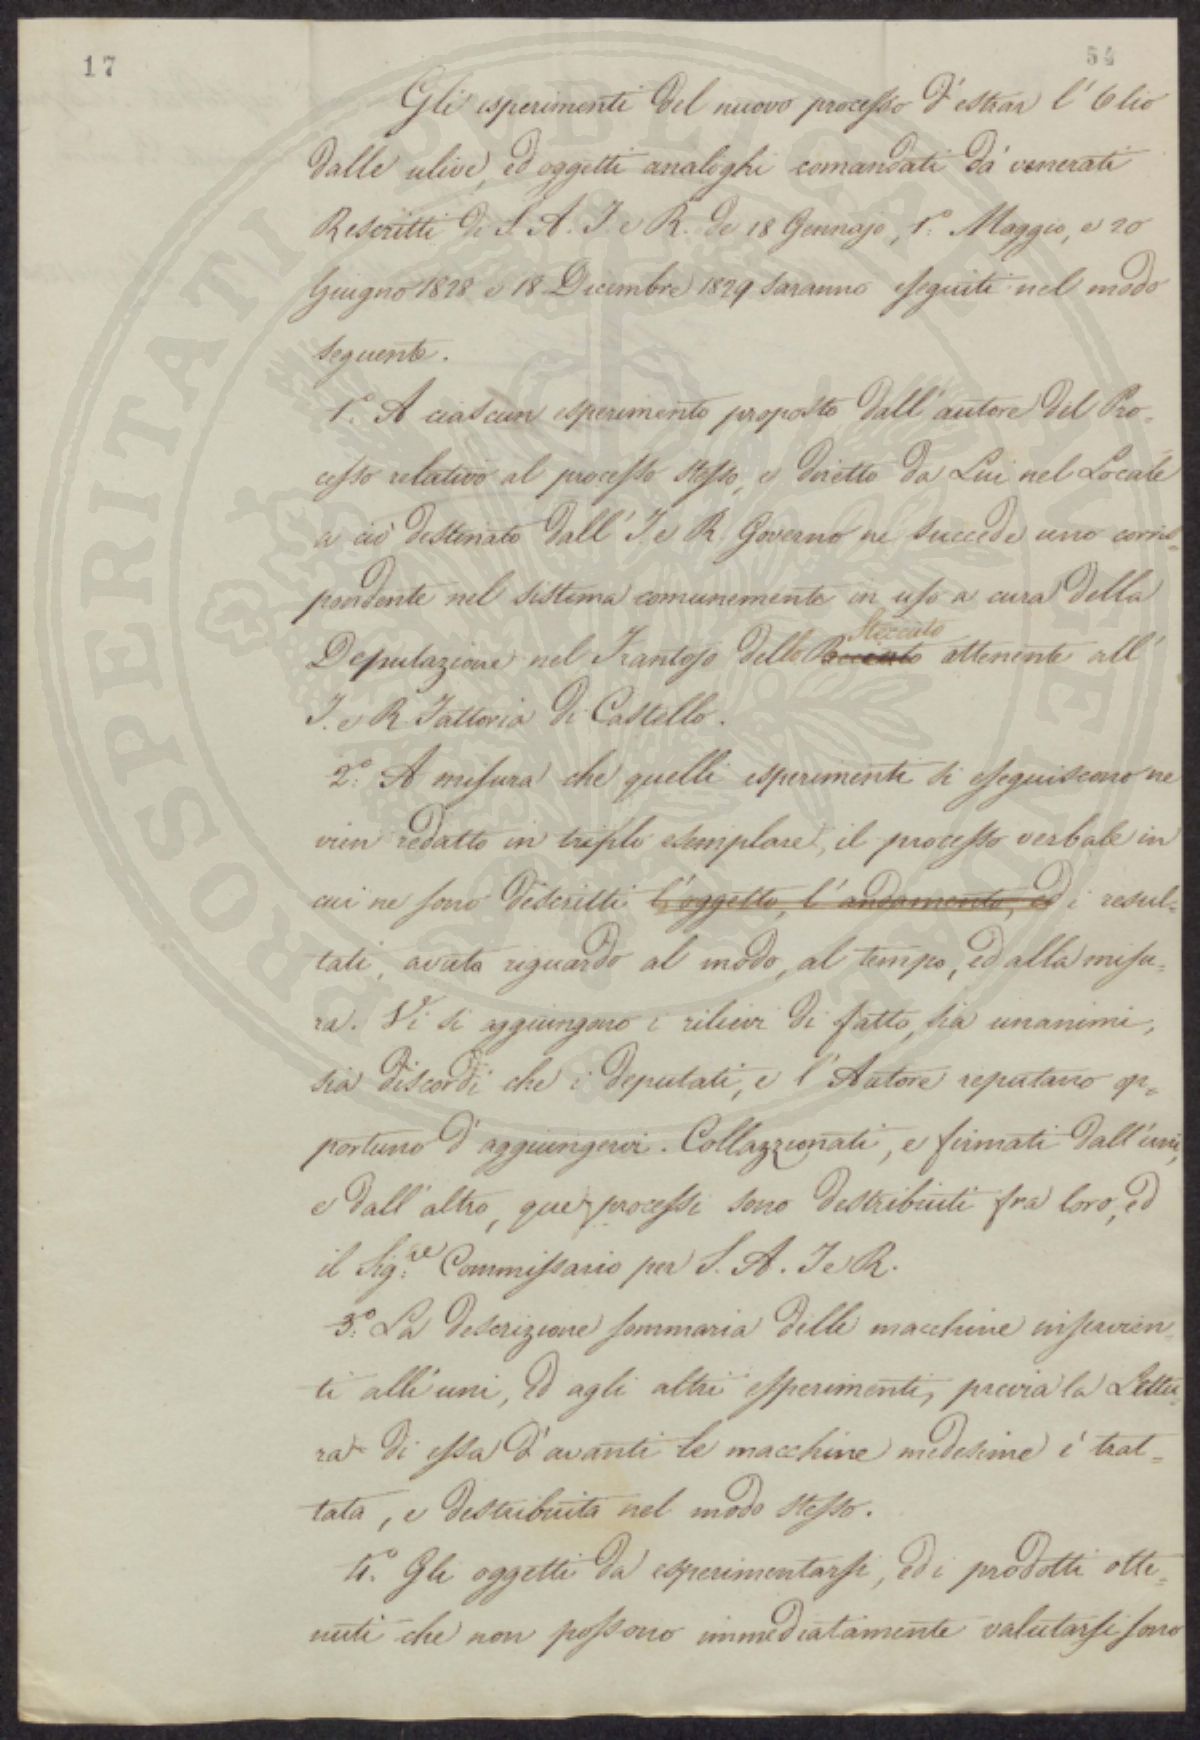 17
54
Gli esperimenti del nuovo processo d'estrar l'Olio
dalle ulive, ed oggetti analoghi comandati da' venerati
Rescritti di S. A. I. e R. de 18 Gennajo, 1º: Maggio, e 20
Giugno 1828 e 18 Dicembre 1829 saranno eseguiti nel modo
seguente.
1º. A ciascun esperimento proposto dall'autore del Pro-
cesso relativo al processo stesso, e diretto da Lui nel Locale
a ciò destinato dall'I. e R. Governo ne succede uno corris-
pondente nel sistema comunemente in uso a cura della
Steccuto
Deputazione nel Frantojo dello attenente all'
I. e R. Fattoria di Castello.
2º: A misura che quelli esperimenti si eseguiscono ne
vien redatto in triplo esemplare, il processo verbale in
cui ne sono descritti l'oggetto, l'andamento, ed i resul-
tati, avuto riguardo al modo, al tempo, ed alla misu-
ra. Vi si aggiungono i rilievi di fatto, sia unanimi,
sia discordi che i deputati, e l'Autore reputano op-
portuno d'aggiungervi. Collazzionati, e firmati dall'uni,
e dall'altro, que' processi sono distribuiti fra loro, ed
il Sig:re Commissario per S. A. I e R.
3º: La descrizione sommaria delle macchine inservien-
ti alli uni, ed agli altri esperimenti, previa la Lettu-
ra di essa d'avanti le macchine medesime è trat-
tata, e distribuita nel modo stesso.
4º. Gli oggetti da esperimentarsi, ed i prodotti otte-
nuti che non possono immediatamente valutarsi sono
PROSPERITATI PUBLICAE AUGENDAE